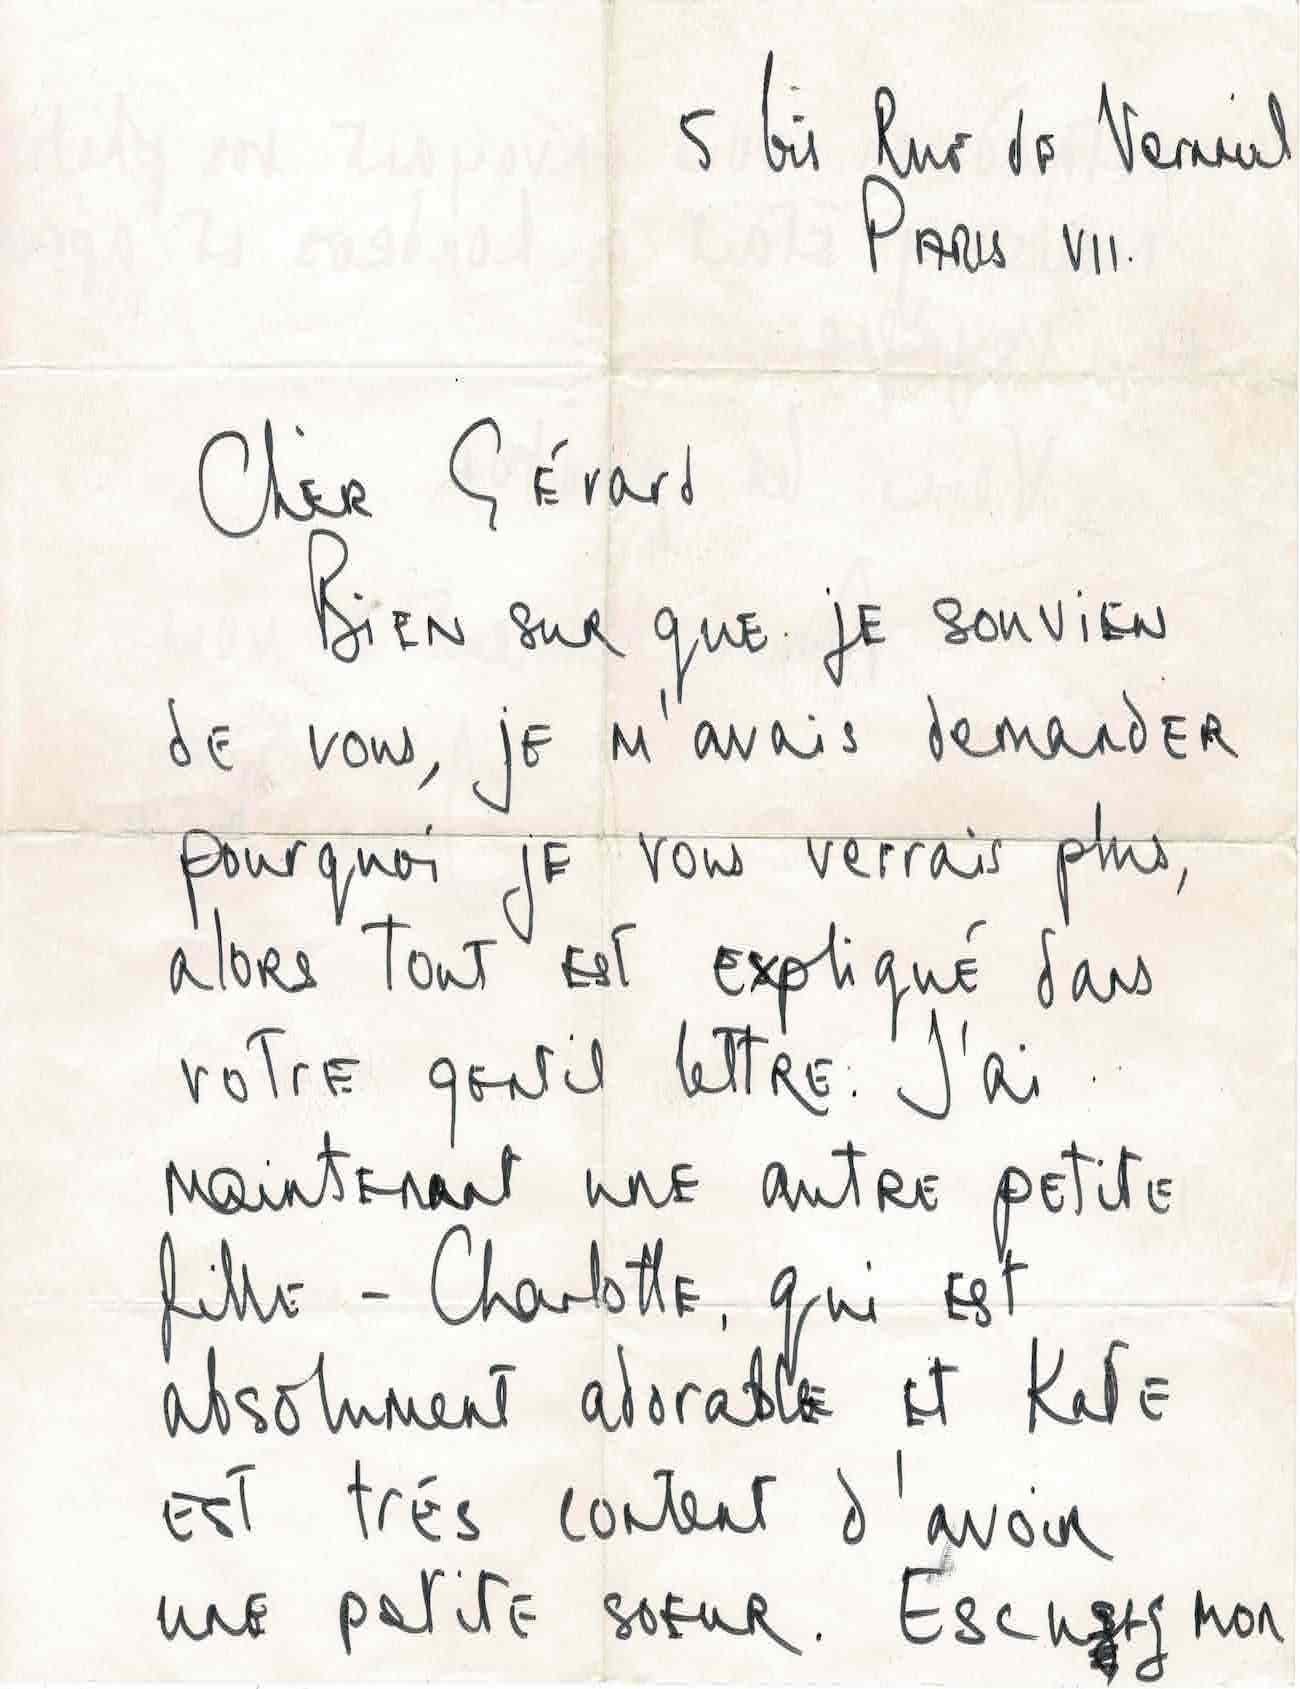 5 bis Rue de Verneuil
PARIS VII.
Cher Gérard
Bien sur que je souvien
de vous, je m'avais demander
pourquoi je vous verrais plus,
alors tout est expliqué dans
votre gentil lettre. J'ai
maintenant une autre petite
fille - Charlotte, qui est
absolument adorable et Kate
est trés content d'avoir
une petite soeur.
mon